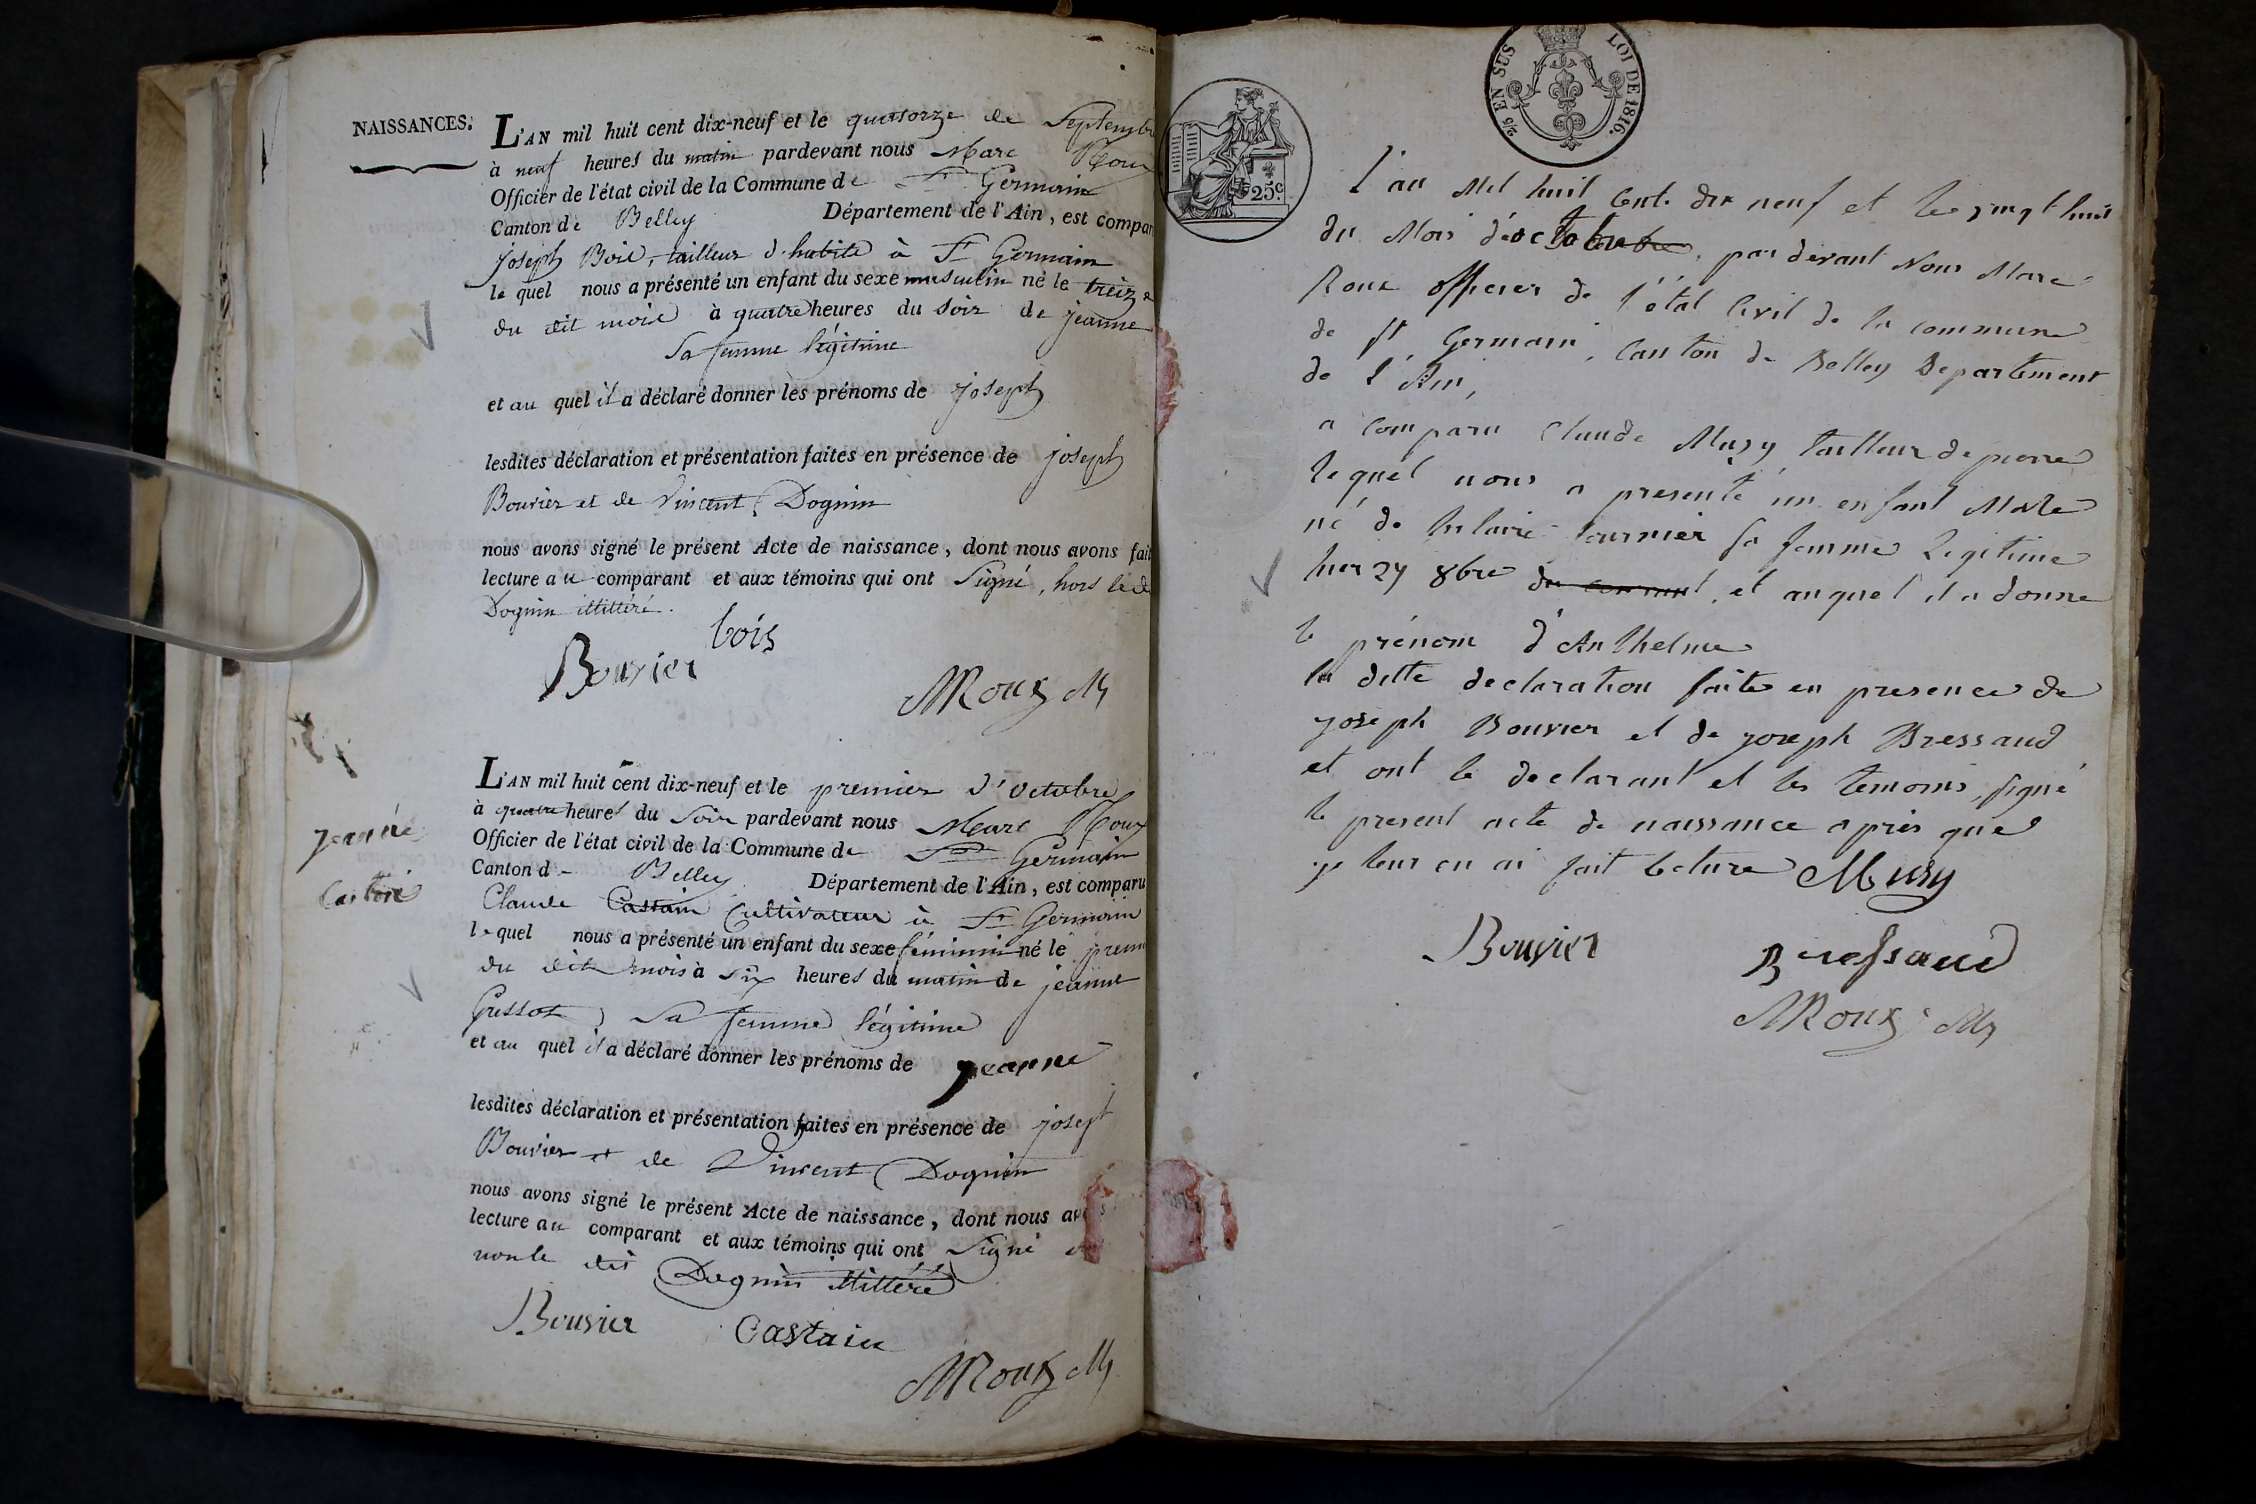 NAISSANCES.
L'AN mil huit cent dix-neuf et le quatorze de Septembre
à neuf heures du matin pardevant nous Marc Roux
Officier de l'état civil de la Commune de St Germain
Canton de Belley Département de l'Ain, est compar
joseph Bois, tailleur d'habits à St Germain
le quel nous a présenté un enfant du sexe masculin né le treize
du dit mois à quatre heures du soir de jeanne
Sa femme légitime
et au quel il a déclaré donner les prénoms de joseph
lesdites déclaration et présentation faites en présence de joseph
Bouvier et de Vincent Dognin
nous avons signé le présent Acte de naissance, dont nous avons fait
lecture au comparant et aux témoins qui ont Signé, hors le d
Dognin illittéré.
bois
Bouvier
MRoux M
L'AN mil huit cent dix-neuf et le premier d'octobre
à quatre heures du Soir pardevant nous Marc Roux
Officier de l'état civil de la Commune de St Germain
Canton de Belley Département de l'Ain, est comparu
Claude Castain Cultivateur à St Germain
le quel nous a présenté un enfant du sexe féminin né le prem
du dit mois à six heures du matin de jeanne
Sa femme légitime
et au quel il a déclaré donner les prénoms de jeanne
lesdites déclaration et présentation faites en présence de joseph
Bouvier et de Vincent Dognin
nous avons signé le présent Acte de naissance, dont nous avons
lecture au comparant et aux témoins qui ont Signé
non le dit Dognin illittéré
Bouvier Castain
MRoux M
jeanne
25c.
5/6 EN SUS LOI DE 1816.
l'an Mil huit Cent dix neuf et le vingt huit
du Mois d'octobre, par devant Nous Marc
Roux officier de l'état Civil de la commune
de St Germain, Canton de Belley Departement
de l'Ain,
a comparu Claude Musy tailleur de pierre
lequel nous a presenté un enfant Mâle
né de hilaire fournier sa femme Legitime
hier 27 8bre du courant, et auquel il a donné
le prénom d'Anthelme
la ditte declaration faite en presence de
joseph Bouvier et de joseph Bressaud
et ont le declarant et les temoins, signé
le present acte de naissance après que
je leur en ai fait lecture Musy
Bouvier Bressaud
MRoux M